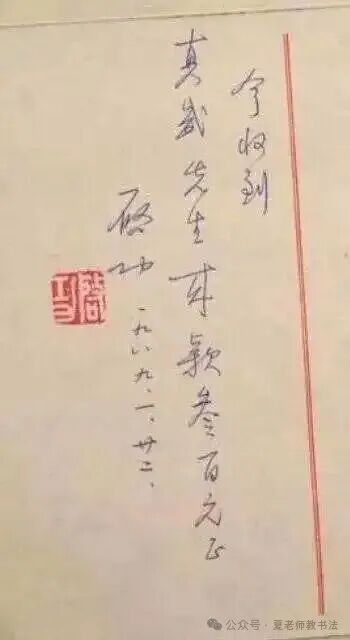 今收到
真威先生来款叁百元正
启功
一九八九.一.廿二.
启功
公众号·夏老师教书法